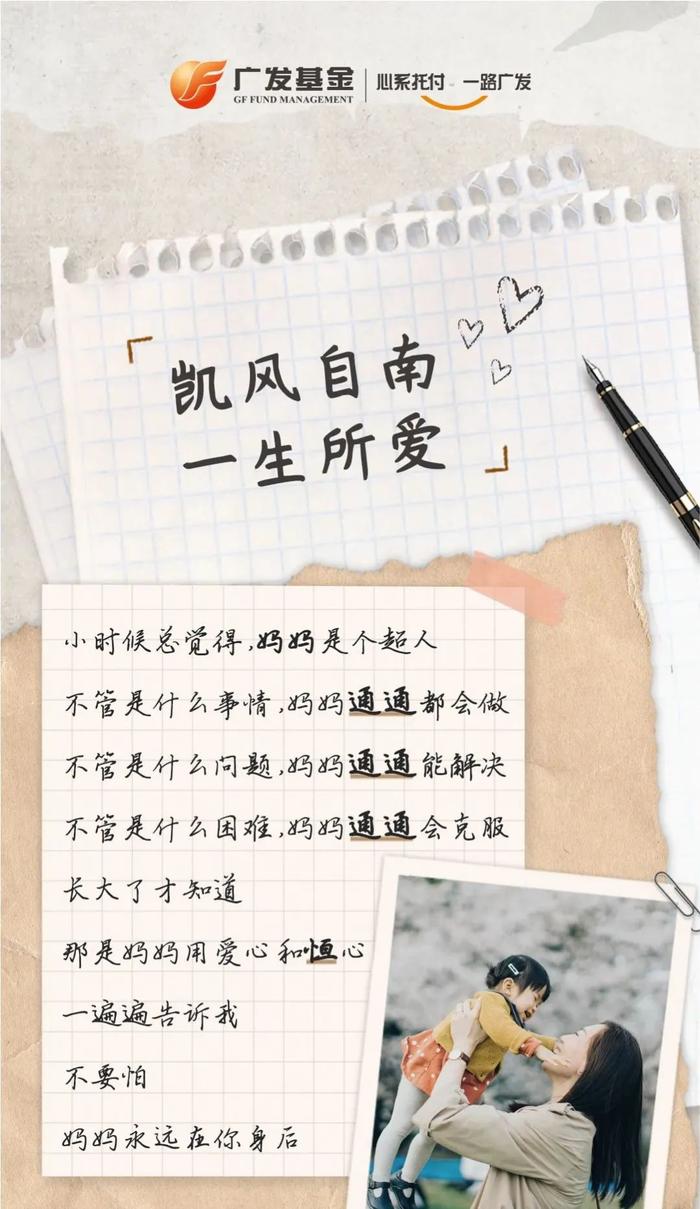 广发基金
GF FUND MANAGEMENT
心系托付 一路广发
「凯风自南
一生所爱」
小时候总觉得,妈妈是个超人
不管是什么事情,妈妈通通都会做
不管是什么问题,妈妈通通能解决
不管是什么困难,妈妈通通会克服
长大了才知道
那是妈妈用爱心和恒心
一遍遍告诉我
不要怕
妈妈永远在你身后